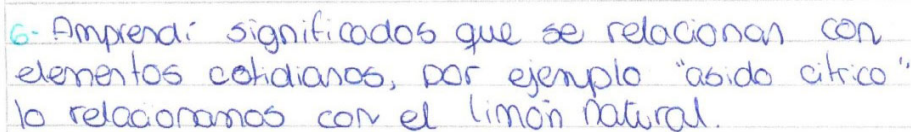 6- Amprendí significados que se relacionan con
elementos cotidianos, por ejemplo "asido citrico"
lo relacionamos con el limón natural.